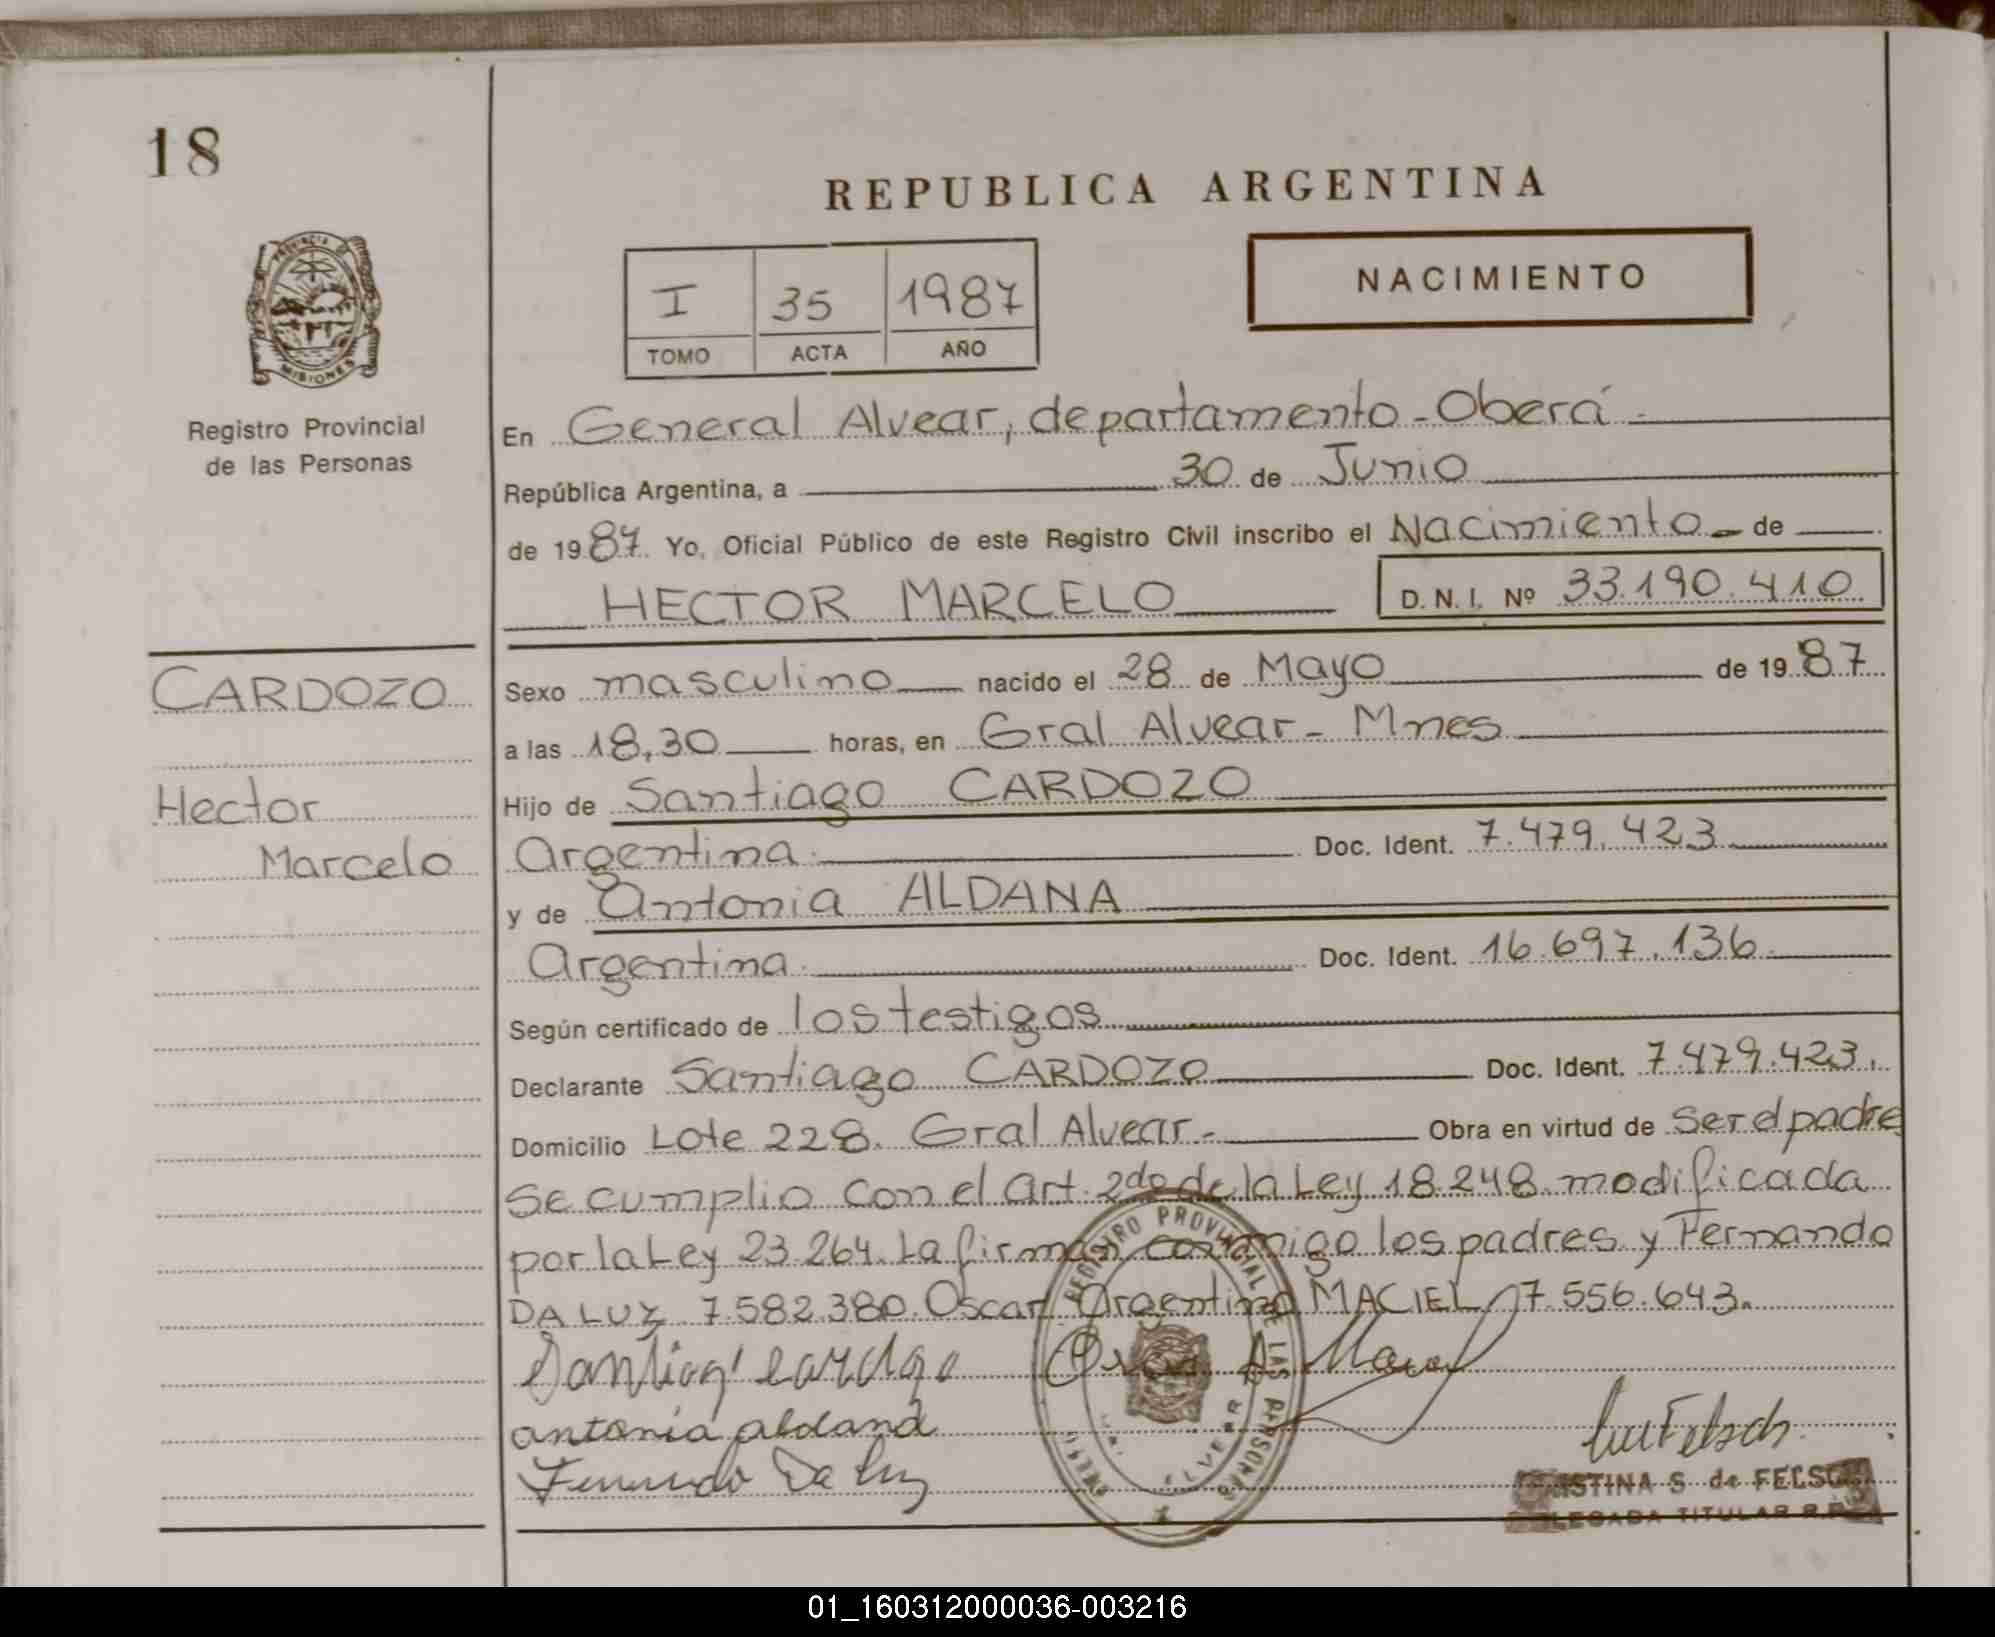 18
REPUBLICA ARGENTINA
PROVINCIA DE
MISIONES
Registro Provincial
de las Personas
I 35 1987
TOMO ACTA AÑO
NACIMIENTO
En General Alvear, departamento - Oberá -
República Argentina, a 30 de Junio
de 1987. Yo, Oficial Público de este Registro Civil inscribo el Nacimiento - de
HECTOR MARCELO D. N. I. Nº 33.190.410
CARDOZO
Hector
Marcelo
Sexo masculino nacido el 28 de Mayo de 1987
a las 18,30 horas, en Gral Alvear - Mnes
Hijo de Santiago CARDOZO
Argentina. Doc. Ident. 7.479.423
y de Antonia ALDANA
Argentina. Doc. Ident. 16.697.136.
Según certificado de los testigos
Declarante Santiago CARDOZO Doc. Ident. 7.479.423.
Domicilio Lote 228. Gral Alvear - Obra en virtud de ser el padre
Se cumplio con el art. 2do de la Ley 18.248. modificada
por la Ley 23.264. La firman conmigo los padres y Fernando
DA LUZ 7.582.380. Oscar Argentino MACIEL 7.556.643.
Santiago Cardozo Oscar A. Maciel
antonia aldana
Fernando Da Luz
REGISTRO PROVINCIAL DE LAS PERSONAS
ALVEAR
ISTINA S. de FELSC
LEGADA TITULAR R.P.
01_160312000036-003216